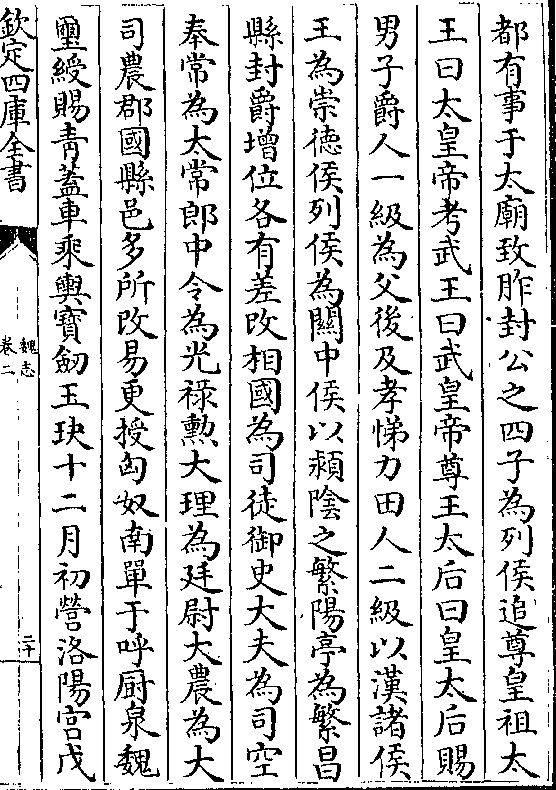 都有事于太廟致胙封公之四子為列侯追尊皇祖太
王曰太皇帝考武王曰武皇帝尊王太后曰皇太后賜
男子爵人一級為父後及孝悌力田人二級以漢諸侯
王為崇德侯列侯為關中侯以潁陰之繁陽亭為繁昌
縣封爵增位各有差改相國為司徒御史大夫為司空
奉常為太常郎中令為光祿勲大理為廷尉大農為大
司農郡國縣邑多所改易更授匈奴南單于呼厨泉魏
璽綬賜青蓋車乘輿寶劒玉玦十二月初營洛陽宫戊
欽定四庫全書
魏志
卷二
二十